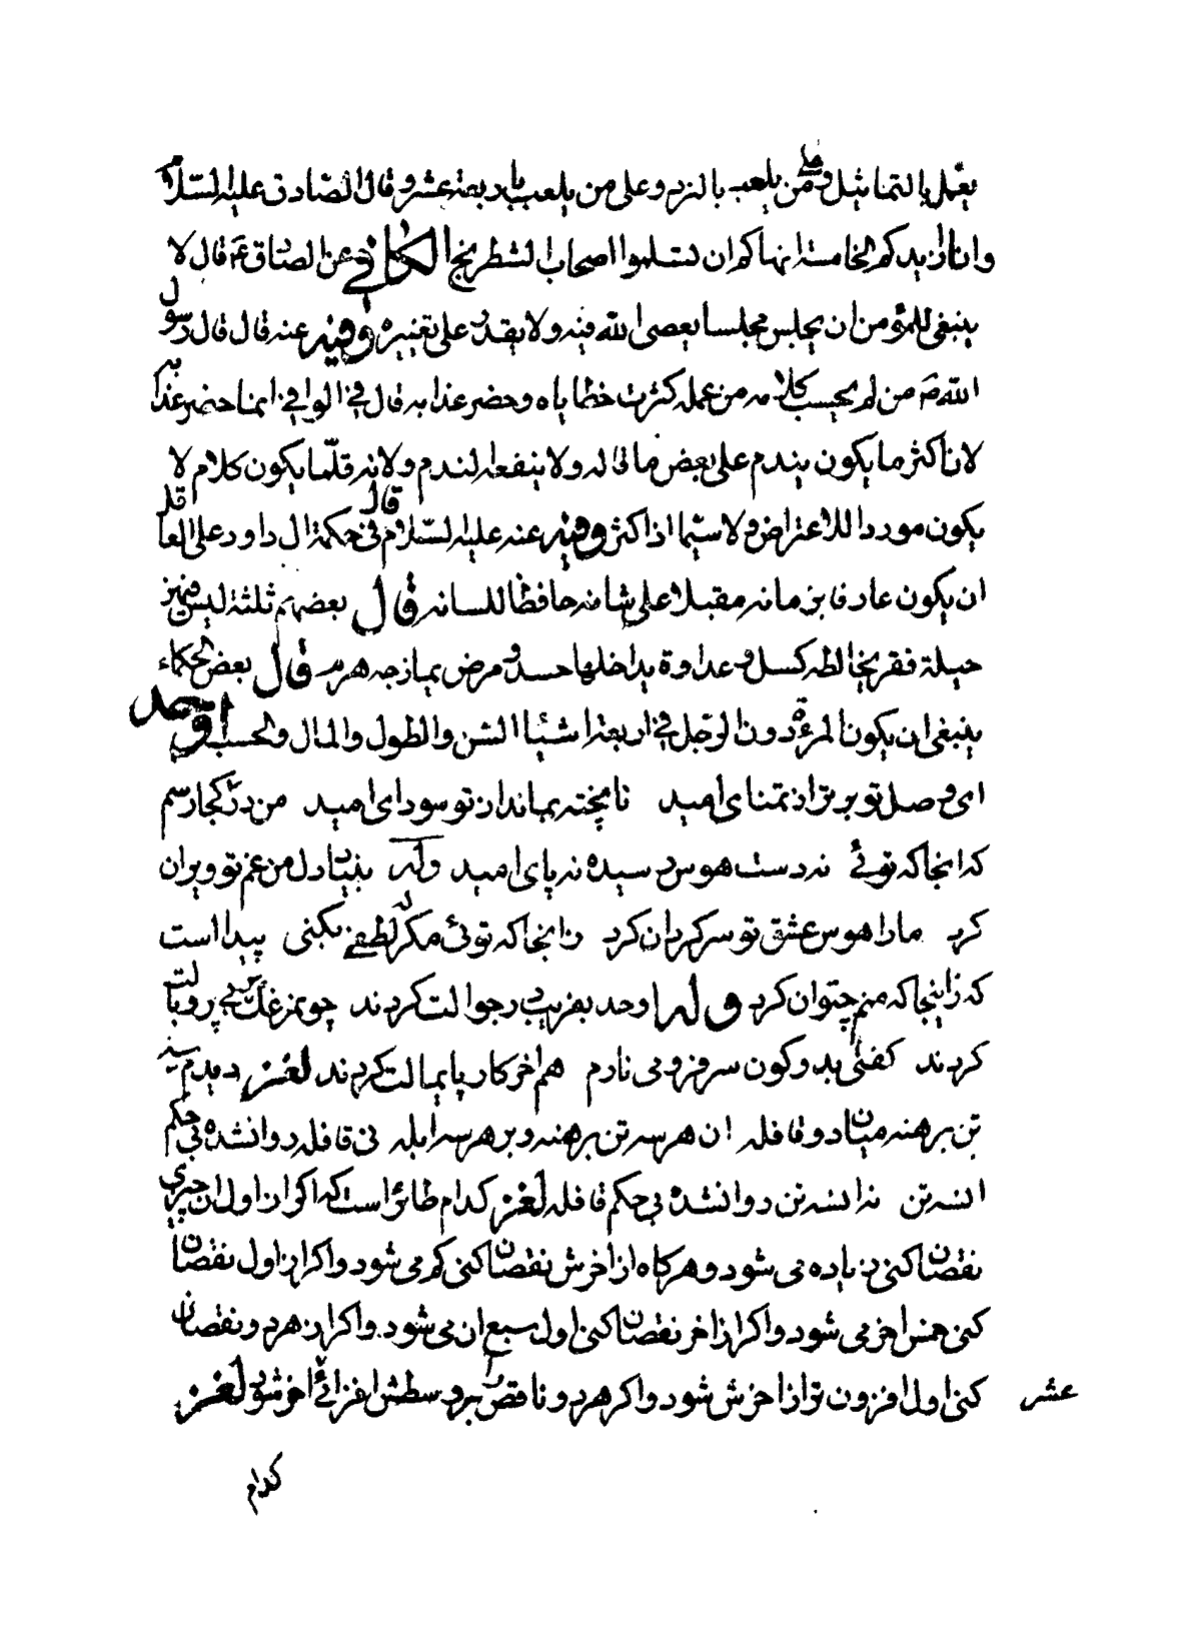 يعمل بالتماثيل وعلى من يلعب بالنرد وعلى من يلعب باربعة عشر وقال الصادق عليه السلام
وانا ازيدكم الخامسة انهاكم ان تسلموا اصحاب الشطرنج الكافي عن الصادق ع قال لا
ينبغي للمؤمن ان يجلس مجلسا يعصى الله فيه ولا يقدر على تغييره وفيه عنه قال قال رسول
الله ص من لم يحسب كلامه من عمله كثرت خطاياه وحضر عذابه قال في الوافي انما حضر عذابه
لان اكثر ما يكون يندم على بعض ما قاله ولا ينفعه الندم ولانه قلّما يكون كلام لا
يكون موردا للاعتراض ولا سيّما اذا كثر وفيه عنه عليه السّلام قال في حكمة ال داود على العاقل
ان يكون عارفا بزمانه مقبلا على شانه حافظا للسانه قال بعضهم ثلثة ليس فيهن
حيلة فقر يخالطه كسل وعداوة يداخلها حسد و مرض يمازجه هرم قال بعض الحكماء
ينبغي ان يكون المرءة دون الرّجل في اربعة اشياء السّن والطول والمال والحسب اوحد
ای وصل تو برتر از تمنای امید ناپخته بماند از تو سودای امید من در تو کجا رسم
که انجا که توئی نه دست هوس رسیده نه پای امید وله بنیاد دل من غم تو ویران
کرد مارا هوس عشق تو سرکردان کرد زانجا که توئی مکر که لطفی بکنی پیدا است
که زاینجا که منم چتوان کرد وله اوحد بفریب در جوالت کردند چون مرغک بی پر و بالت
کردند کفتی بدو کون سر فرو می نارم هم اخر کار پایمالت کردند لغز دیدم سه
تن برهنه میان دو قافله ان هر سه تن برهنه و بر هر سه ابله نی قافله روانشده بی حکم
انسه تن نه انسه تن روانشده بی حکم قافله لغز کدام طائر است که اکر از اول ان چیزی
نقصان کنی زیاده می شود و هرکاه از اخرش نقصان کنی کم می شود و اکر از اول نقصان
کنی خمس اخر می شود و اکر از اخر نقصان کنی اول سبع ان می شود و اکر از هر دو نقصان
کنی اول افزون تر از اخرش شود و اکر هر دو ناقص برد سطش افزائی اخر شود لغز
عشر
کدام